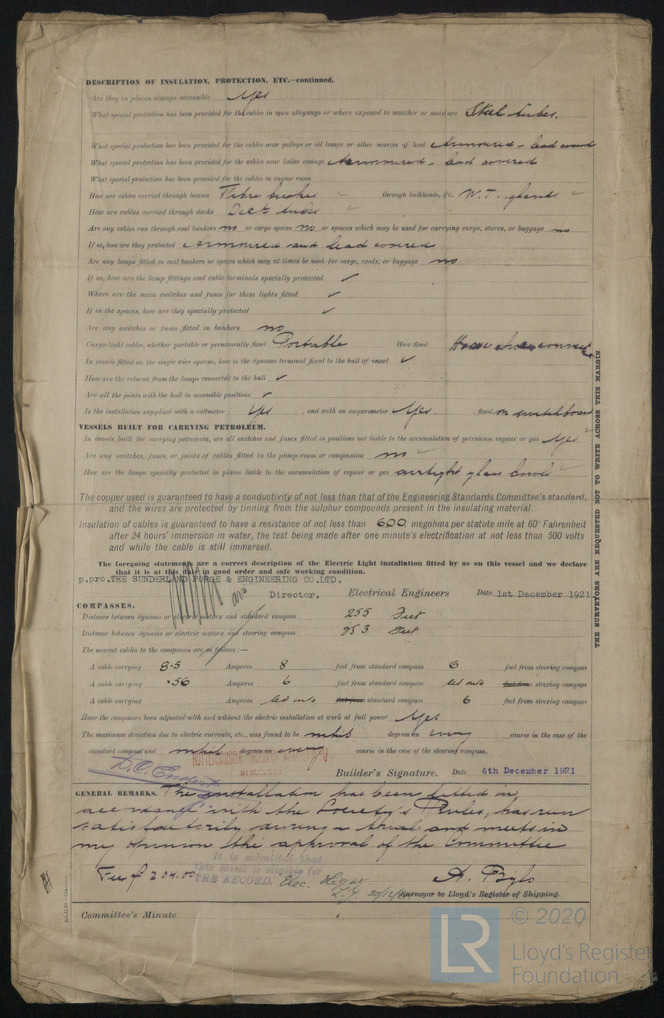 DESCRIPTION OF INSULATION, PROTECTION, ETC.—continued.
Are they in places always accessible Yes
What special protection has been provided for the cables in open alleyways or where exposed to weather or moisture Steel tubes.
What special protection has been provided for the cables near galleys or oil lamps or other sources of heat Armoured - lead covered
What special protection has been provided for the cables near boiler casings Armoured - lead covered
What special protection has been provided for the cables in engine room
How are cables carried through beams Fibre through bulkheads, &c. W.T. glands
How are cables carried through decks tubes
Are any cables run through coal bunkers no or cargo spaces no or spaces which may be used for carrying cargo, stores, or baggage no
If so, how are they protected Armoured and lead covered
Are any lamps fitted in coal bunkers or spaces which may at times be used for cargo, coals, or baggage no
If so, how are the lamp fittings and cable terminals specially protected ✓
Where are the main switches and fuses for these lights fitted ✓
If in the spaces, how are they specially protected ✓
Are any switches or fuses fitted in bunkers no
Cargo light cables, whether portable or permanently fixed Portable How fixed
In vessels fitted on the single wire system, how is the dynamo terminal fixed to the hull of vessel ✓
How are the returns from the lamps connected to the hull ✓
Are all the joints with the hull in accessible positions ✓
Is the installation supplied with a voltmeter Yes, and with an amperemeter Yes, fixed on switchboard
VESSELS BUILT FOR CARRYING PETROLEUM.
In vessels built for carrying petroleum, are all switches and fuses fitted in positions not liable to the accumulation of petroleum vapour or gas Yes
Are any switches, fuses, or joints of cables fitted in the pump room or companion no
How are the lamps specially protected in places liable to the accumulation of vapour or gas airtight glass
The copper used is guaranteed to have a conductivity of not less than that of the Engineering Standards Committee's standard,
and the wires are protected by tinning from the sulphur compounds present in the insulating material.
Insulation of cables is guaranteed to have a resistance of not less than 600 megohms per statute mile at 60° Fahrenheit
after 24 hours' immersion in water, the test being made after one minute's electrification at not less than 500 volts
and while the cable is still immersed.
The foregoing statements are a correct description of the Electric Light installation fitted by us on this vessel and we declare
that it is at this date in good order and safe working condition.
p.pro. THE SUNDERLAND FORGE & ENGINEERING CO. LTD.
Director. Electrical Engineers Date 1st December 1921
COMPASSES.
Distance between dynamo or electric motors and standard compass 255 Feet
Distance between dynamo or electric motors and steering compass 253 Feet
The nearest cables to the compasses are as follows:—
A cable carrying 8.5 Amperes 8 feet from standard compass 6 feet from steering compass
A cable carrying .56 Amperes 6 feet from standard compass led into feet from steering compass
A cable carrying Amperes led into feet from standard compass 6 feet from steering compass
Have the compasses been adjusted with and without the electric installation at work at full power Yes
The maximum deviation due to electric currents, etc., was found to be degrees on every course in the case of the
standard compass and degrees on every course in the case of the steering compass.
Builder's Signature. Date 6th December 1921
GENERAL REMARKS. The installation has been fitted in
accordance with the Society's Rules, has run
satisfactorily during a trial and meets in
my opinion the approval of the Committee
It is submitted that
this vessel is eligible for
THE RECORD. Elec. Light
Fee f 204.00
Surveyor to Lloyd's Register of Shipping.
Committee's Minute
THE SURVEYORS ARE REQUESTED NOT TO WRITE ACROSS THIS MARGIN
LR
© 2020
Lloyd's Register
Foundation